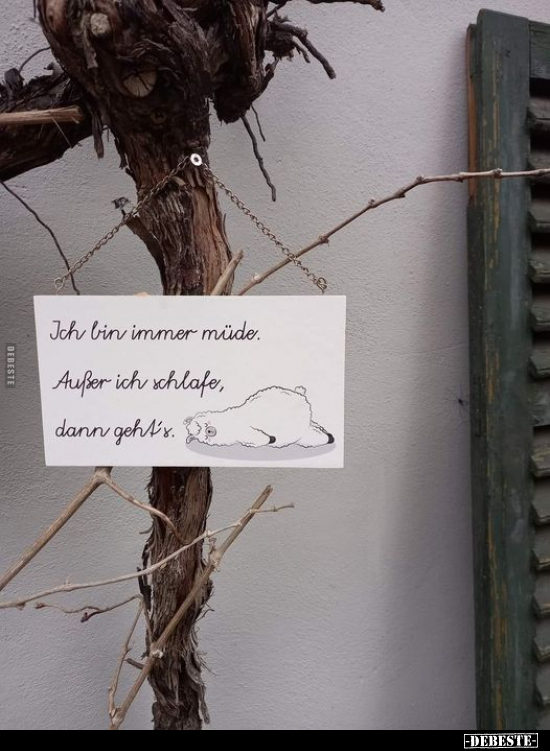 Ich bin immer müde.
Außer ich schlafe,
dann geht´s.
DEBESTE
-DEBESTE-